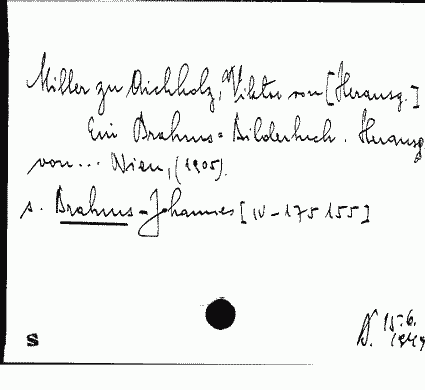 Miller zu Aichholz, Viktor von [Herausg.]
Ein Brahms-Bilderbuch. Herausg
von... Wien, (1905).
s. Brahms-Johannes [IV-175 155]
S
15.6.